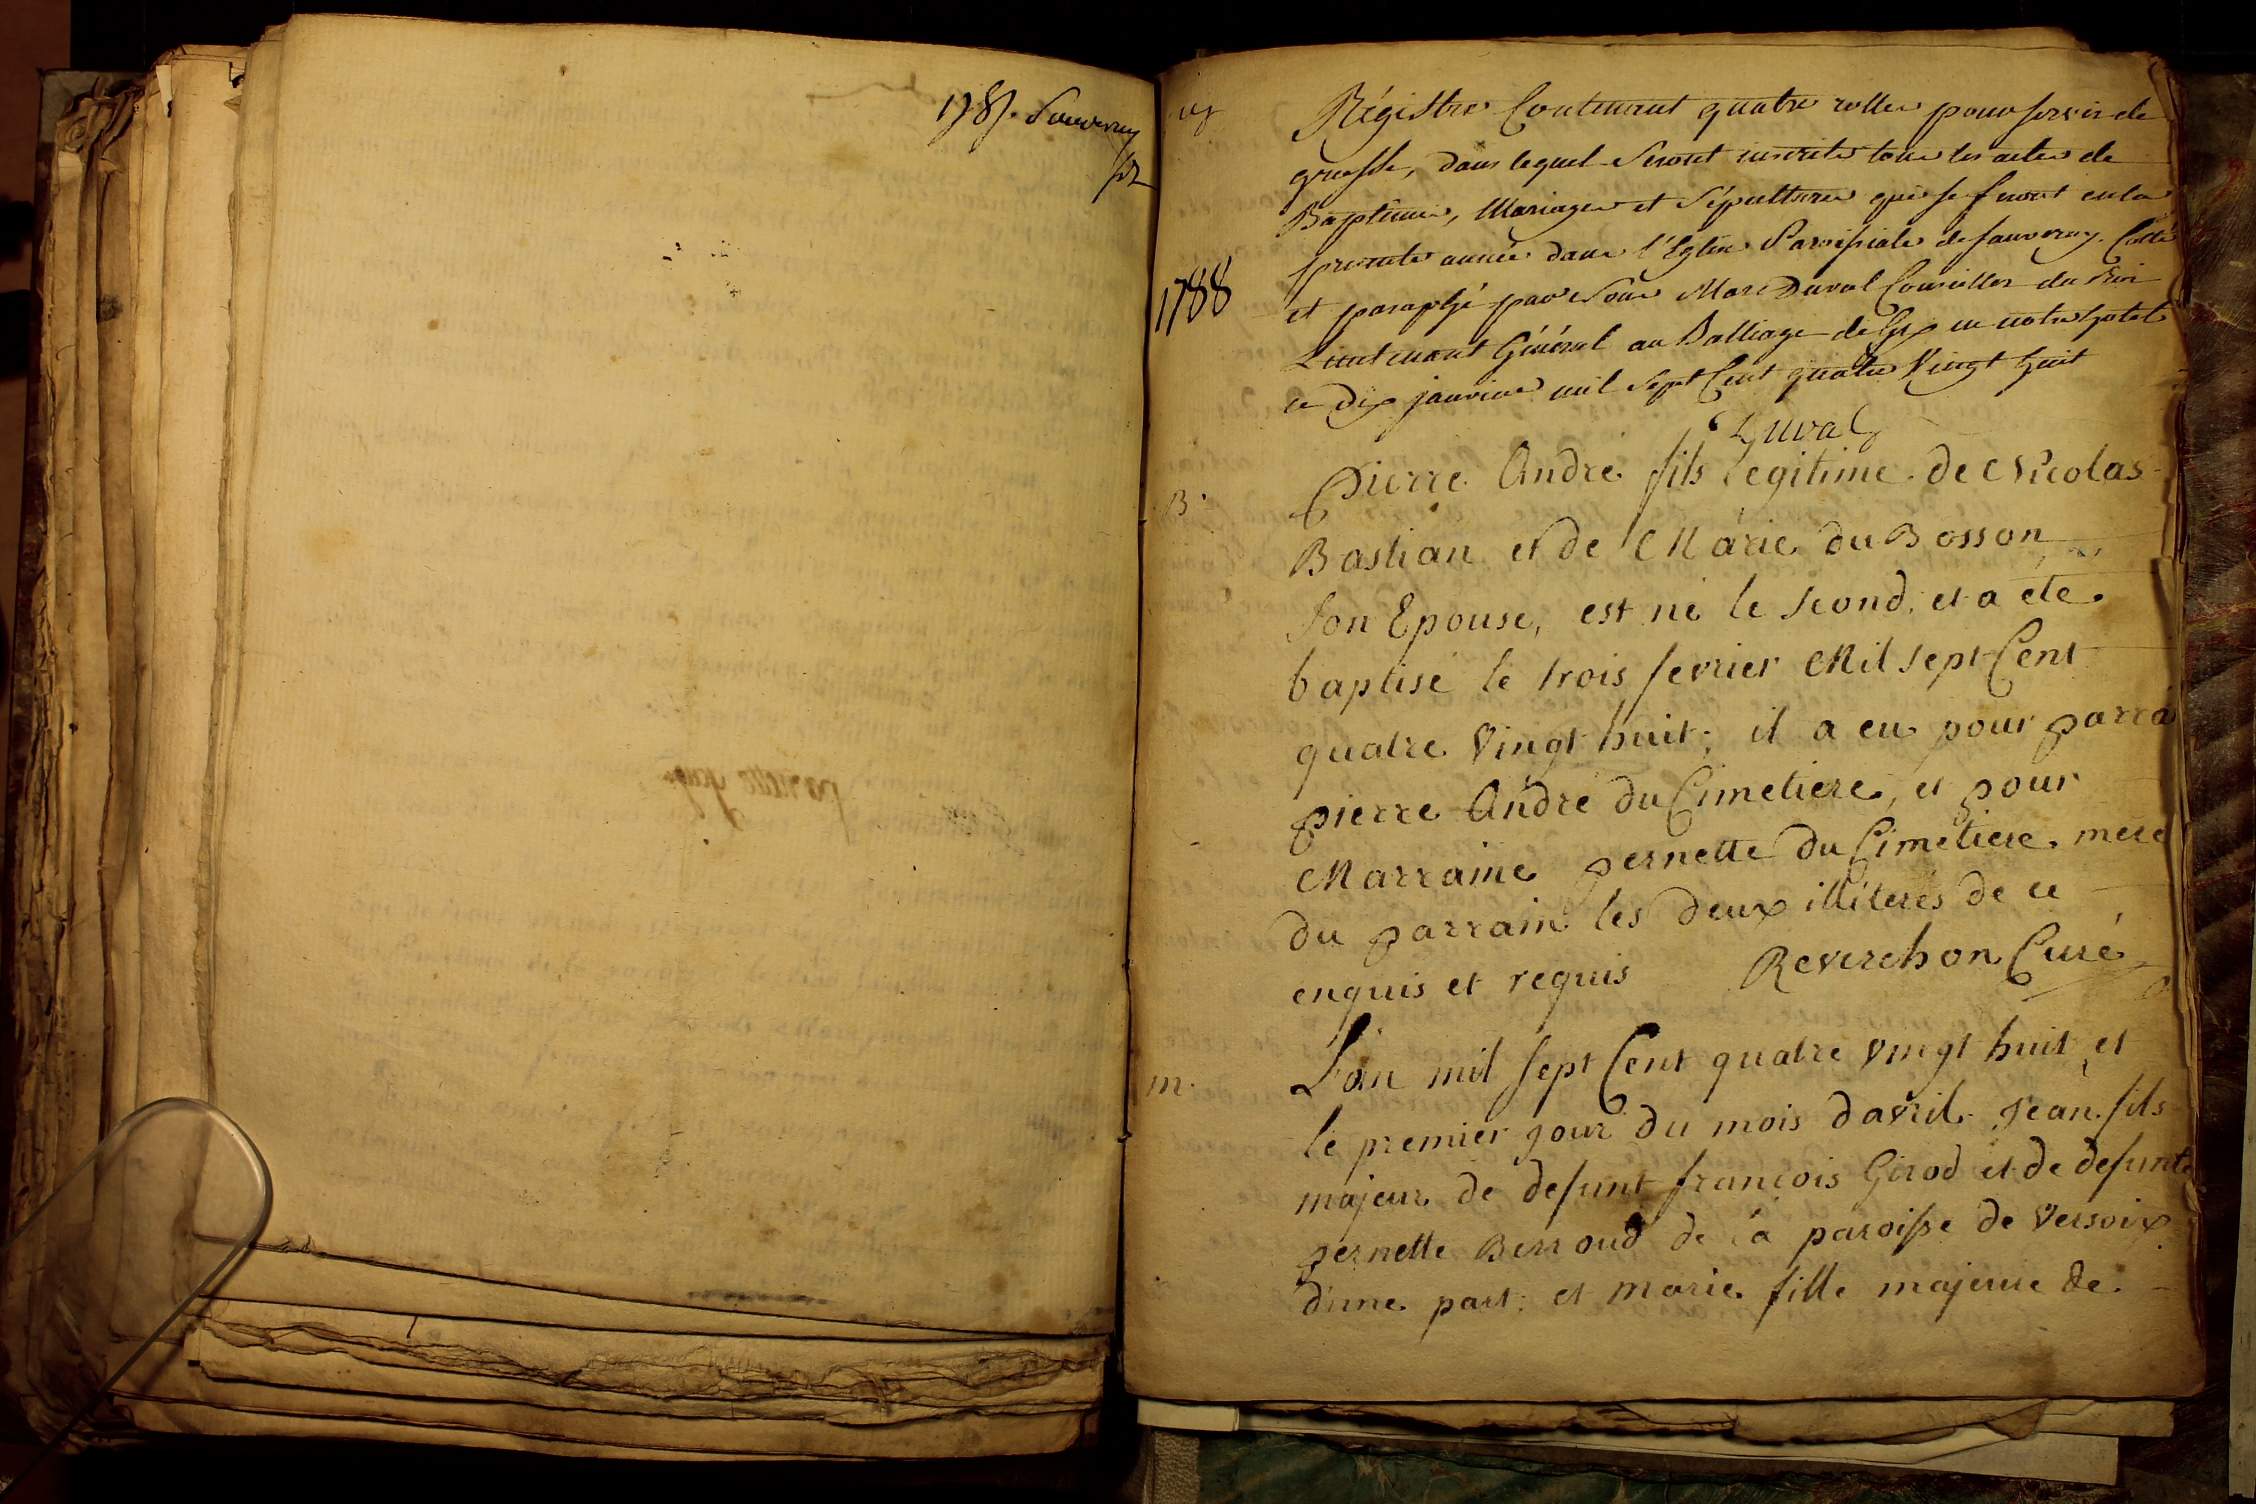 1787. Sauverny
Régistre Contenant quatre rolles pour servir de
grosse, dans lequel seront inscrits tous les actes de
Baptêmes, Mariages et Sépultures qui se feront en la
presente année dans l'Eglise Paroissiale de Sauverny. Cotté
et paraphé par Nous Marc Duval Conseiller du Roi
1788
Lieutenant Général au Balliage de Gex en notre hotel
ce dix janvier mil sept Cent quatre Vingt huit
Duval
B.
Pierre André fils legitime de Nicolas
Bastian et de Marie du Bosson
son Epouse, est né le second, et a été
baptisé le trois fevrier Mil sept Cent
quatre Vingt huit; il a eu pour parra
pierre André du Cimetiere, et pour
Marraine pernette du Cimetiere mere
du parrain les deux illiterés de ce
enquis et requis Reverchon Curé
m.
L'an mil sept Cent quatre vingt huit et
le premier jour du mois d'avril Jean fils
majeur de defunt francois Girod et de defunte
pernette Berroud de la paroisse de Versoix
d'une part; et marie fille majeure de